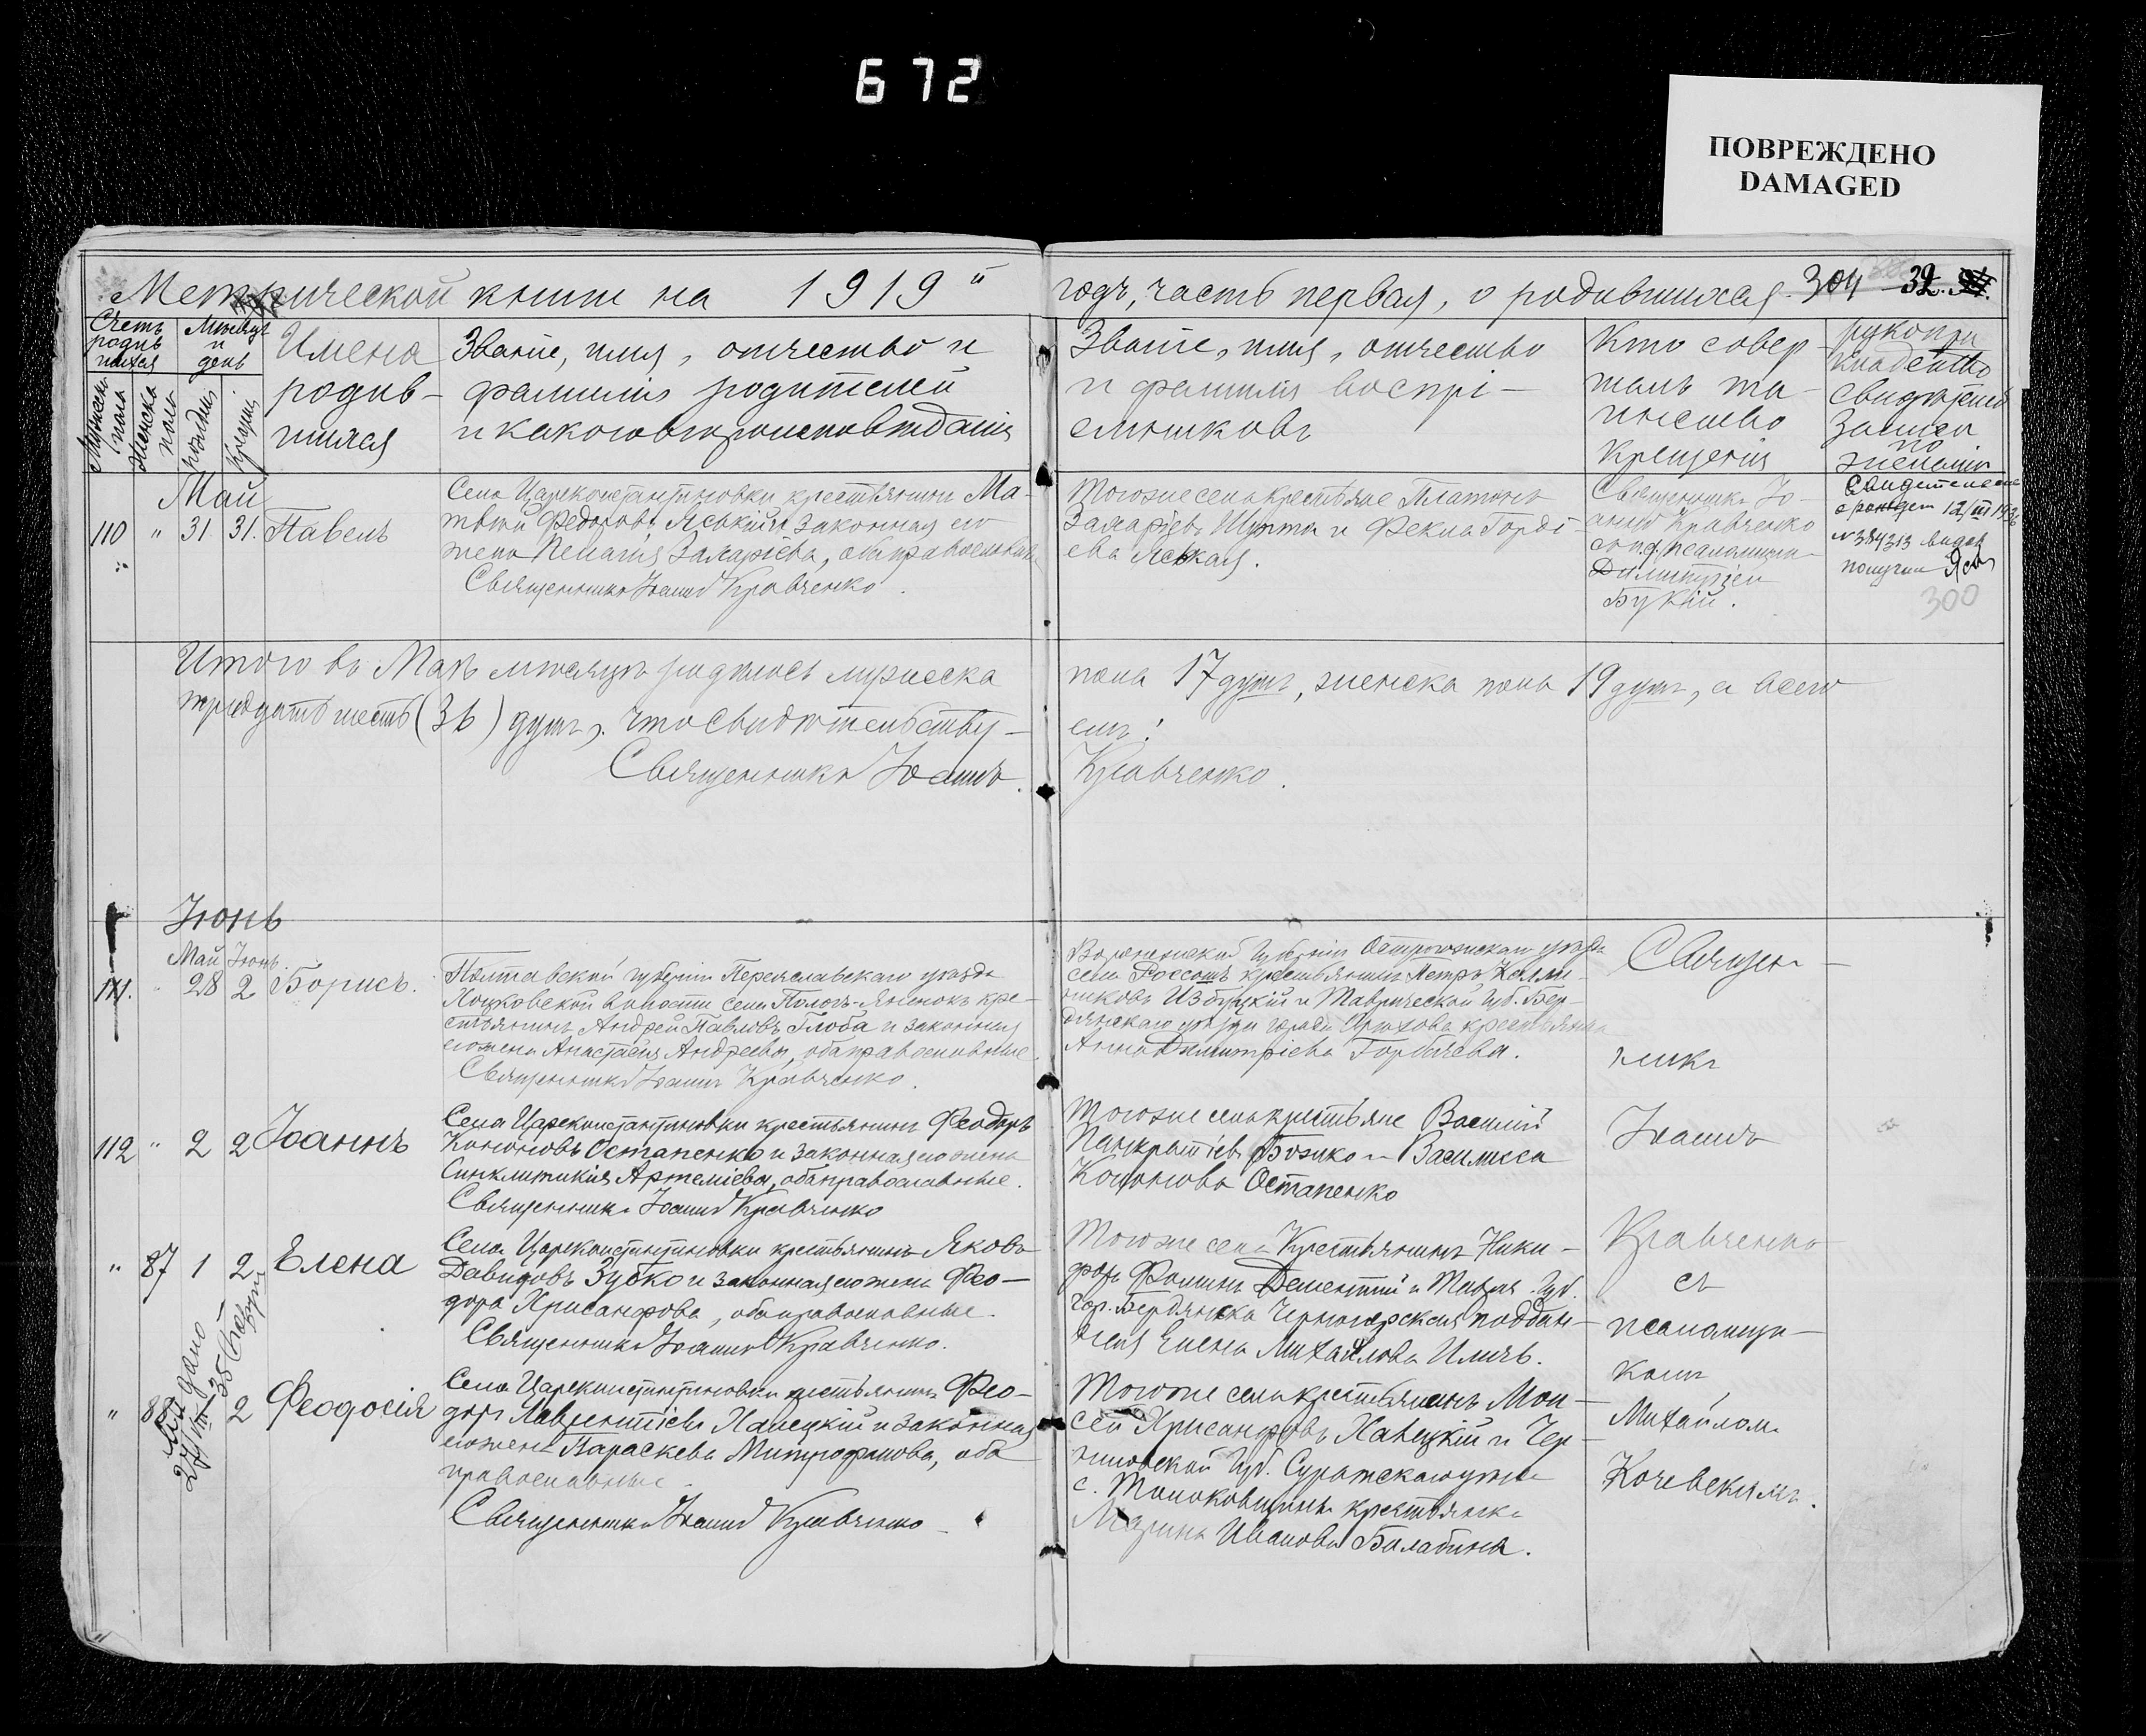 672
ПОВРЕЖДЕНО
DAMAGED
Метрической книги на 1919й годъ, часть первая, о родившихся. 304 32.
Счетъ родившихся
Мужеска пола
Женска пола
Мѣсяцъ и день
рожденія
крещенія
Имена родившихся
Званіе, имя, отчество и
фамилія родителей
и какого вѣроисповѣданія
Званіе, имя, отчество
и фамилія воспрі-
емниковъ
Кто совер-
шалъ та-
инство
крещенія
рукопри
свидѣтелей
записи
по
желанію
Май
110 " 31 31. Павелъ
Села Цареконстантиновки крестьянинъ Ма-
твѣй Федоровъ Яській и законная его
жена Пелагія Захаріева, оба православные
Священникъ Іоаннъ Кравченко.
Тогоже села крестьяне Платонъ
Захаріевъ Шутта и Фекла Горді-
ева Яськая.
Священникъ Іо-
аннъ Кравченко
съ и.д. псаломщи-
Димитріем
Букій.
Свидетельство
о рожден 12/III 1936
N 384313
получил
300
Итого въ Маѣ мѣсяцѣ родилось мужеска
пола 17 душъ, женска пола 19 душъ, а всего
тридцать шесть (36) душъ, что свидѣтельству-
емъ:
Священникъ Іоаннъ Кравченко.
Іюнь
Май Іюнь
111. " 28 2 Борисъ.
Полтавской губерніи Переяславскаго уѣзда
волости села крe-
стьянинъ Андрей Павловъ Глоба и законная
его жена Анастасія Андреева, оба православные.
Священникъ Іоаннъ Кравченко.
Воронежской губерніи Острогожскаго уѣзда
села Россошъ крестьянинъ Петръ
Избицкій и Таврической губ. Бер-
дянскаго уѣзда города Орѣхова крестьянка
Анна Димитріева Горбачева.
Священ-
никъ
112 " 2 2 Іоаннъ
Села Цареконстантиновки крестьянинъ Феодоръ
Кононовъ Остапенко и законная его жена
Синклитикія Артеміева, оба православные.
Священникъ Іоаннъ Кравченко
Тогоже села крестьяне Василій
Панкратіевъ Божко и Василисса
Кононова Остапенко
Іоаннъ
" 87 1 2 Елена
Села Цареконстантиновки крестьянинъ Яковъ
Давидовъ Зубко и законная его жена Фео-
дора Хрисанфова, оба православные.
Священникъ Іоаннъ Кравченко.
Тогоже села крестьянинъ Ники-
форъ Фоминъ Дементій и Таврич. губ.
гор. Бердянска Черногорская поддан-
ная Елена Михайлова Иличъ.
Кравченко
съ
псаломщи-
комъ
" 88 2 Феодосія
дано
27/VIII-35
Села Цареконстантиновки крестьянинъ Фео-
доръ Лаврентіевъ Ханецкій и законная
его жена Параскева Митрофанова, оба
православные
Священникъ Іоаннъ Кравченко
Тогоже села крестьянинъ Мои-
сей Хрисанфовъ Ханецкій и Чер-
ниговской губ. Суражскаго уѣзда
с. крестьянка
Марина Иванова Балабина.
Михаиломъ
Кочевскимъ.